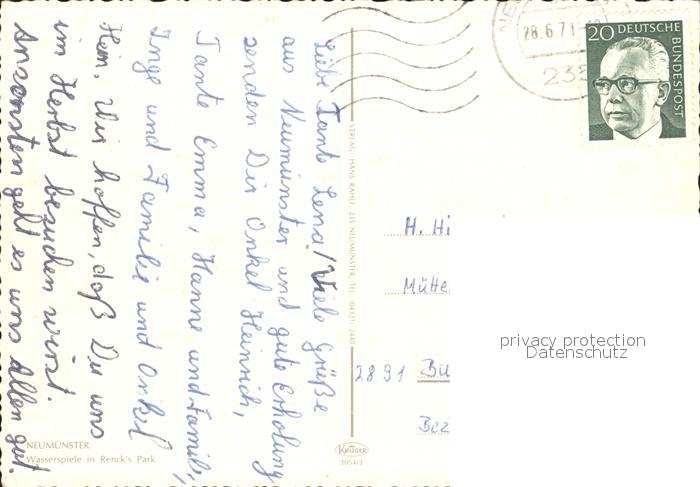 Liebe Tante Lena! Viele Grüße
aus Neumünster und gute Erholung
senden Dir Onkel Heinrich,
Tante Emma, Hanne und Familie,
Inge und Familie und Onkel
Hein. Wir hoffen, daß Du uns
im Herbst besuchen wirst.
Ansonsten geht es uns allen gut.
NEUMÜNSTER
Wasserspiele in Renck's Park
VERLAG HANS RAHLF, 235 NEUMÜNSTER, TEL. (04321) 2440
Krüger
1054/3
28.6.71
235
20 DEUTSCHE
BUNDESPOST
H. Hi
Mütte
2891 Bu
Bez
privacy protection
Datenschutz